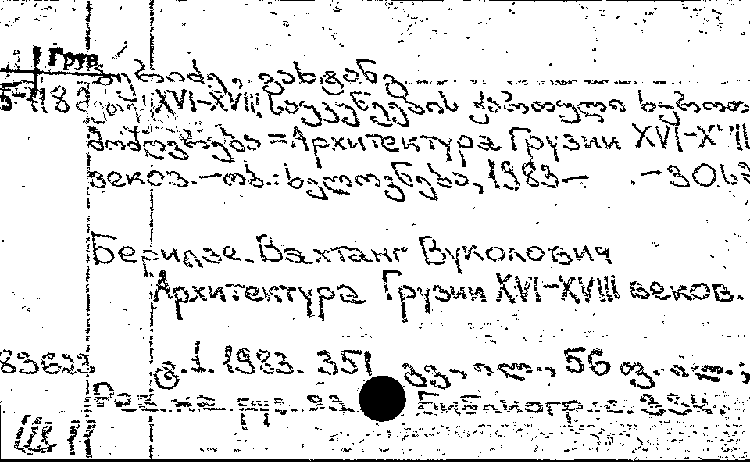 Груз
ბერიძე, ვახტანგ
XVI-XVIII საუკუნეების ქართული ხუროთ
მოძღვრება = Архитектура Грузии XVI-XVIII
веков. - თბ.: ხელოვნება, 1983 -
Беридзе, Вахтанг Вуколович
Архитектура Грузии XVI-XVIII веков.
83623 ტ. 1. 1983. 351 გვ., ილ., 56 ფ. ილ.;
Рез. на рус. яз. Библиогр.: с. 334.